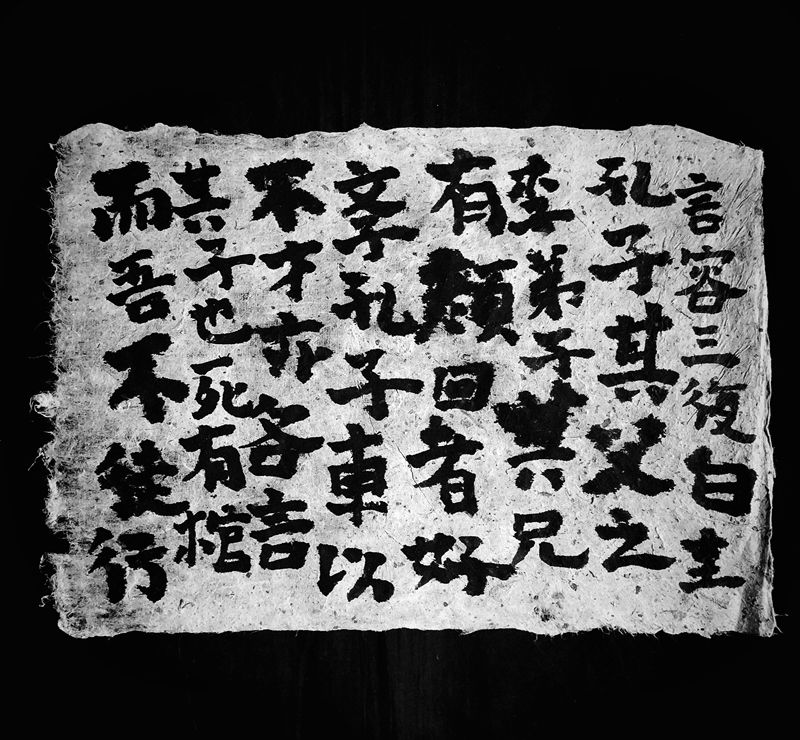 言容三復白圭
孔子其父之
季弟子其兄
有顏回者好
斈孔子車以
不才亦各言
其子也死有棺
而吾不徒行